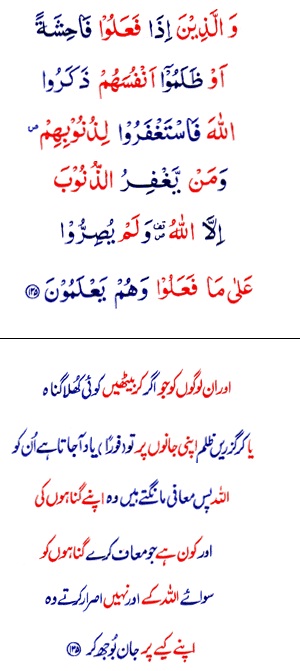 وَ الَّذِیْنَ اِذَا فَعَلُوْا فَاحِشَةً
اَوْ ظَلَمُوْۤا اَنْفُسَهُمْ ذَكَرُوا
اللهَ فَاسْتَغْفَرُوْا لِذُنُوْبِهِمْ ۪
وَمَنْ یَّغْفِرُ الذُّنُوْبَ
اِلَّا اللهُ ۪۫ وَلَمْ یُصِرُّوْا
عَلٰی مَا فَعَلُوْا وَهُمْ یَعْلَمُوْنَ ﴿۱۳۵﴾
اور ان لوگوں کو جو اگر کر بیٹھیں کوئی کُھلا گناہ
یا کر گزریں ظلم اپنی جانوں پر تو (فوراً) یاد آجاتا ہے اُن کو
اللہ پس معافی مانگتے ہیں وہ اپنے گناہوں کی
اور کون ہے جو معاف کرے گناہوں کو
سوائے اللہ کے اور نہیں اصرار کرتے وہ
اپنے کیے پر جان بُوجھ کر ﴿۱۳۵﴾